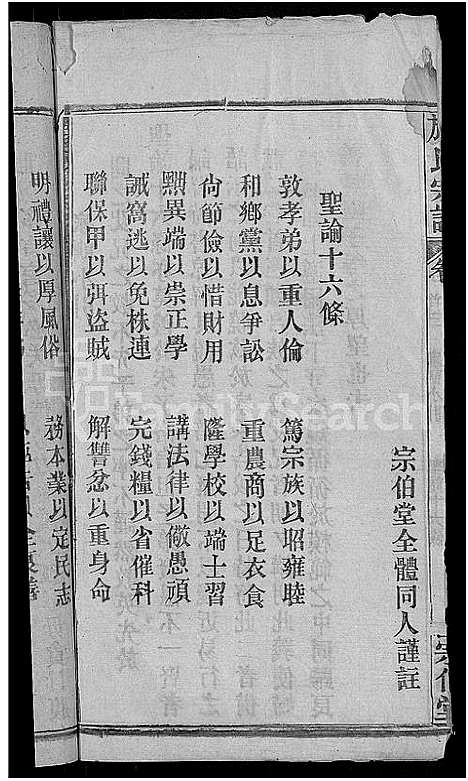 宗伯堂全體同人謹註
聖諭十六條
敦孝弟以重人倫　篤宗族以昭雍睦
和鄉黨以息爭訟　重農商以足衣食
尙節儉以惜財用　隆學校以端士習
黜異端以崇正學　講法律以儆愚頑
誡窩逃以免株連　完錢糧以省催科
聯保甲以弭盜賊　解讐忿以重身命
明禮讓以厚風俗　務本業以定民志
氏宗譜
宗伯堂
FamilySearch